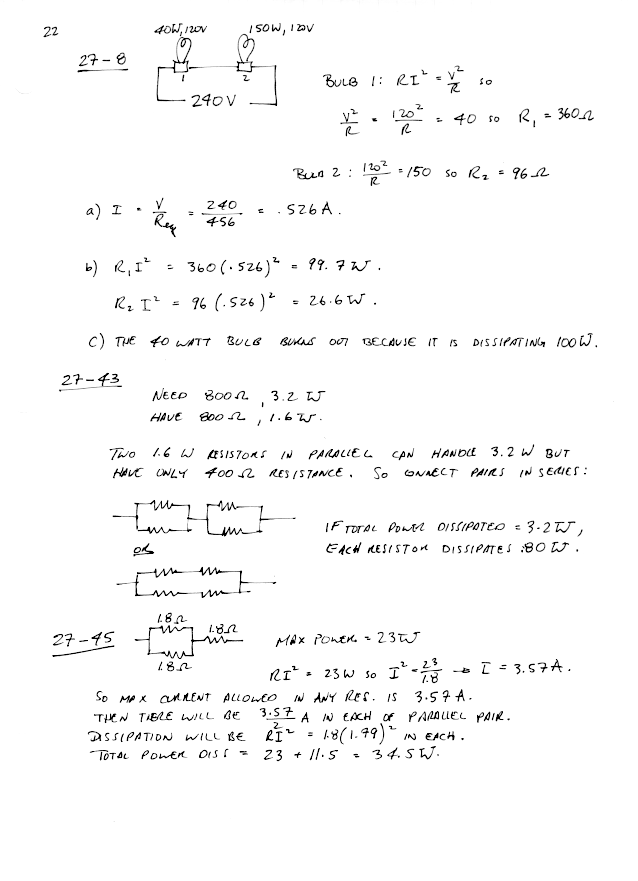 22
40W, 120V 150W, 120V
27-8
1 2
240V
BULB 1: RI² = V²/R SO
V²/R = 120²/R = 40 SO R₁ = 360Ω
BULB 2: 120²/R = 150 SO R₂ = 96Ω
a) I = V/Req = 240/456 = .526A.
b) R₁I² = 360(.526)² = 99.7W.
R₂I² = 96(.526)² = 26.6W.
C) THE 40 WATT BULB BURNS OUT BECAUSE IT IS DISSIPATING 100W.
27-43
NEED 800Ω, 3.2W
HAVE 800Ω, 1.6W.
TWO 1.6 W RESISTORS IN PARALLEL CAN HANDLE 3.2 W BUT
HAVE ONLY 400Ω RESISTANCE. SO CONNECT PAIRS IN SERIES:
IF TOTAL POWER DISSIPATED = 3.2W,
OR
EACH RESISTOR DISSIPATES .80W.
27-45
1.8Ω
1.8Ω
1.8Ω
MAX POWER = 23W
RI² = 23W SO I² = 23/1.8 → I = 3.57A.
SO MAX CURRENT ALLOWED IN ANY RES. IS 3.57A.
THEN THERE WILL BE 3.57/2 A IN EACH OF PARALLEL PAIR.
DISSIPATION WILL BE RI² = 1.8(1.79)² IN EACH.
TOTAL POWER DISS = 23 + 11.5 = 34.5W.